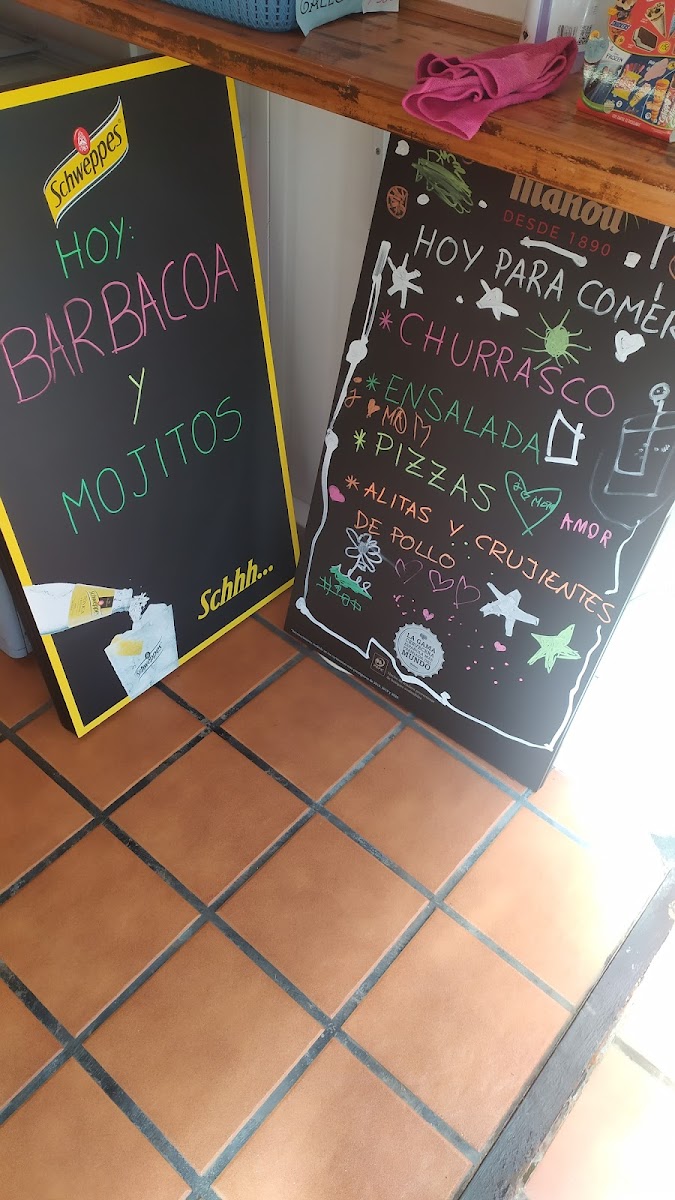 Schweppes
HOY:
BARBACOA
Y
MOJITOS
Schhh...
Mahou
DESDE 1890
HOY PARA COMER
* CHURRASCO
* ENSALADA
* PIZZAS
AMOR
* ALITAS Y CRUJIENTES
DE POLLO
LA GAMA
MUNDO